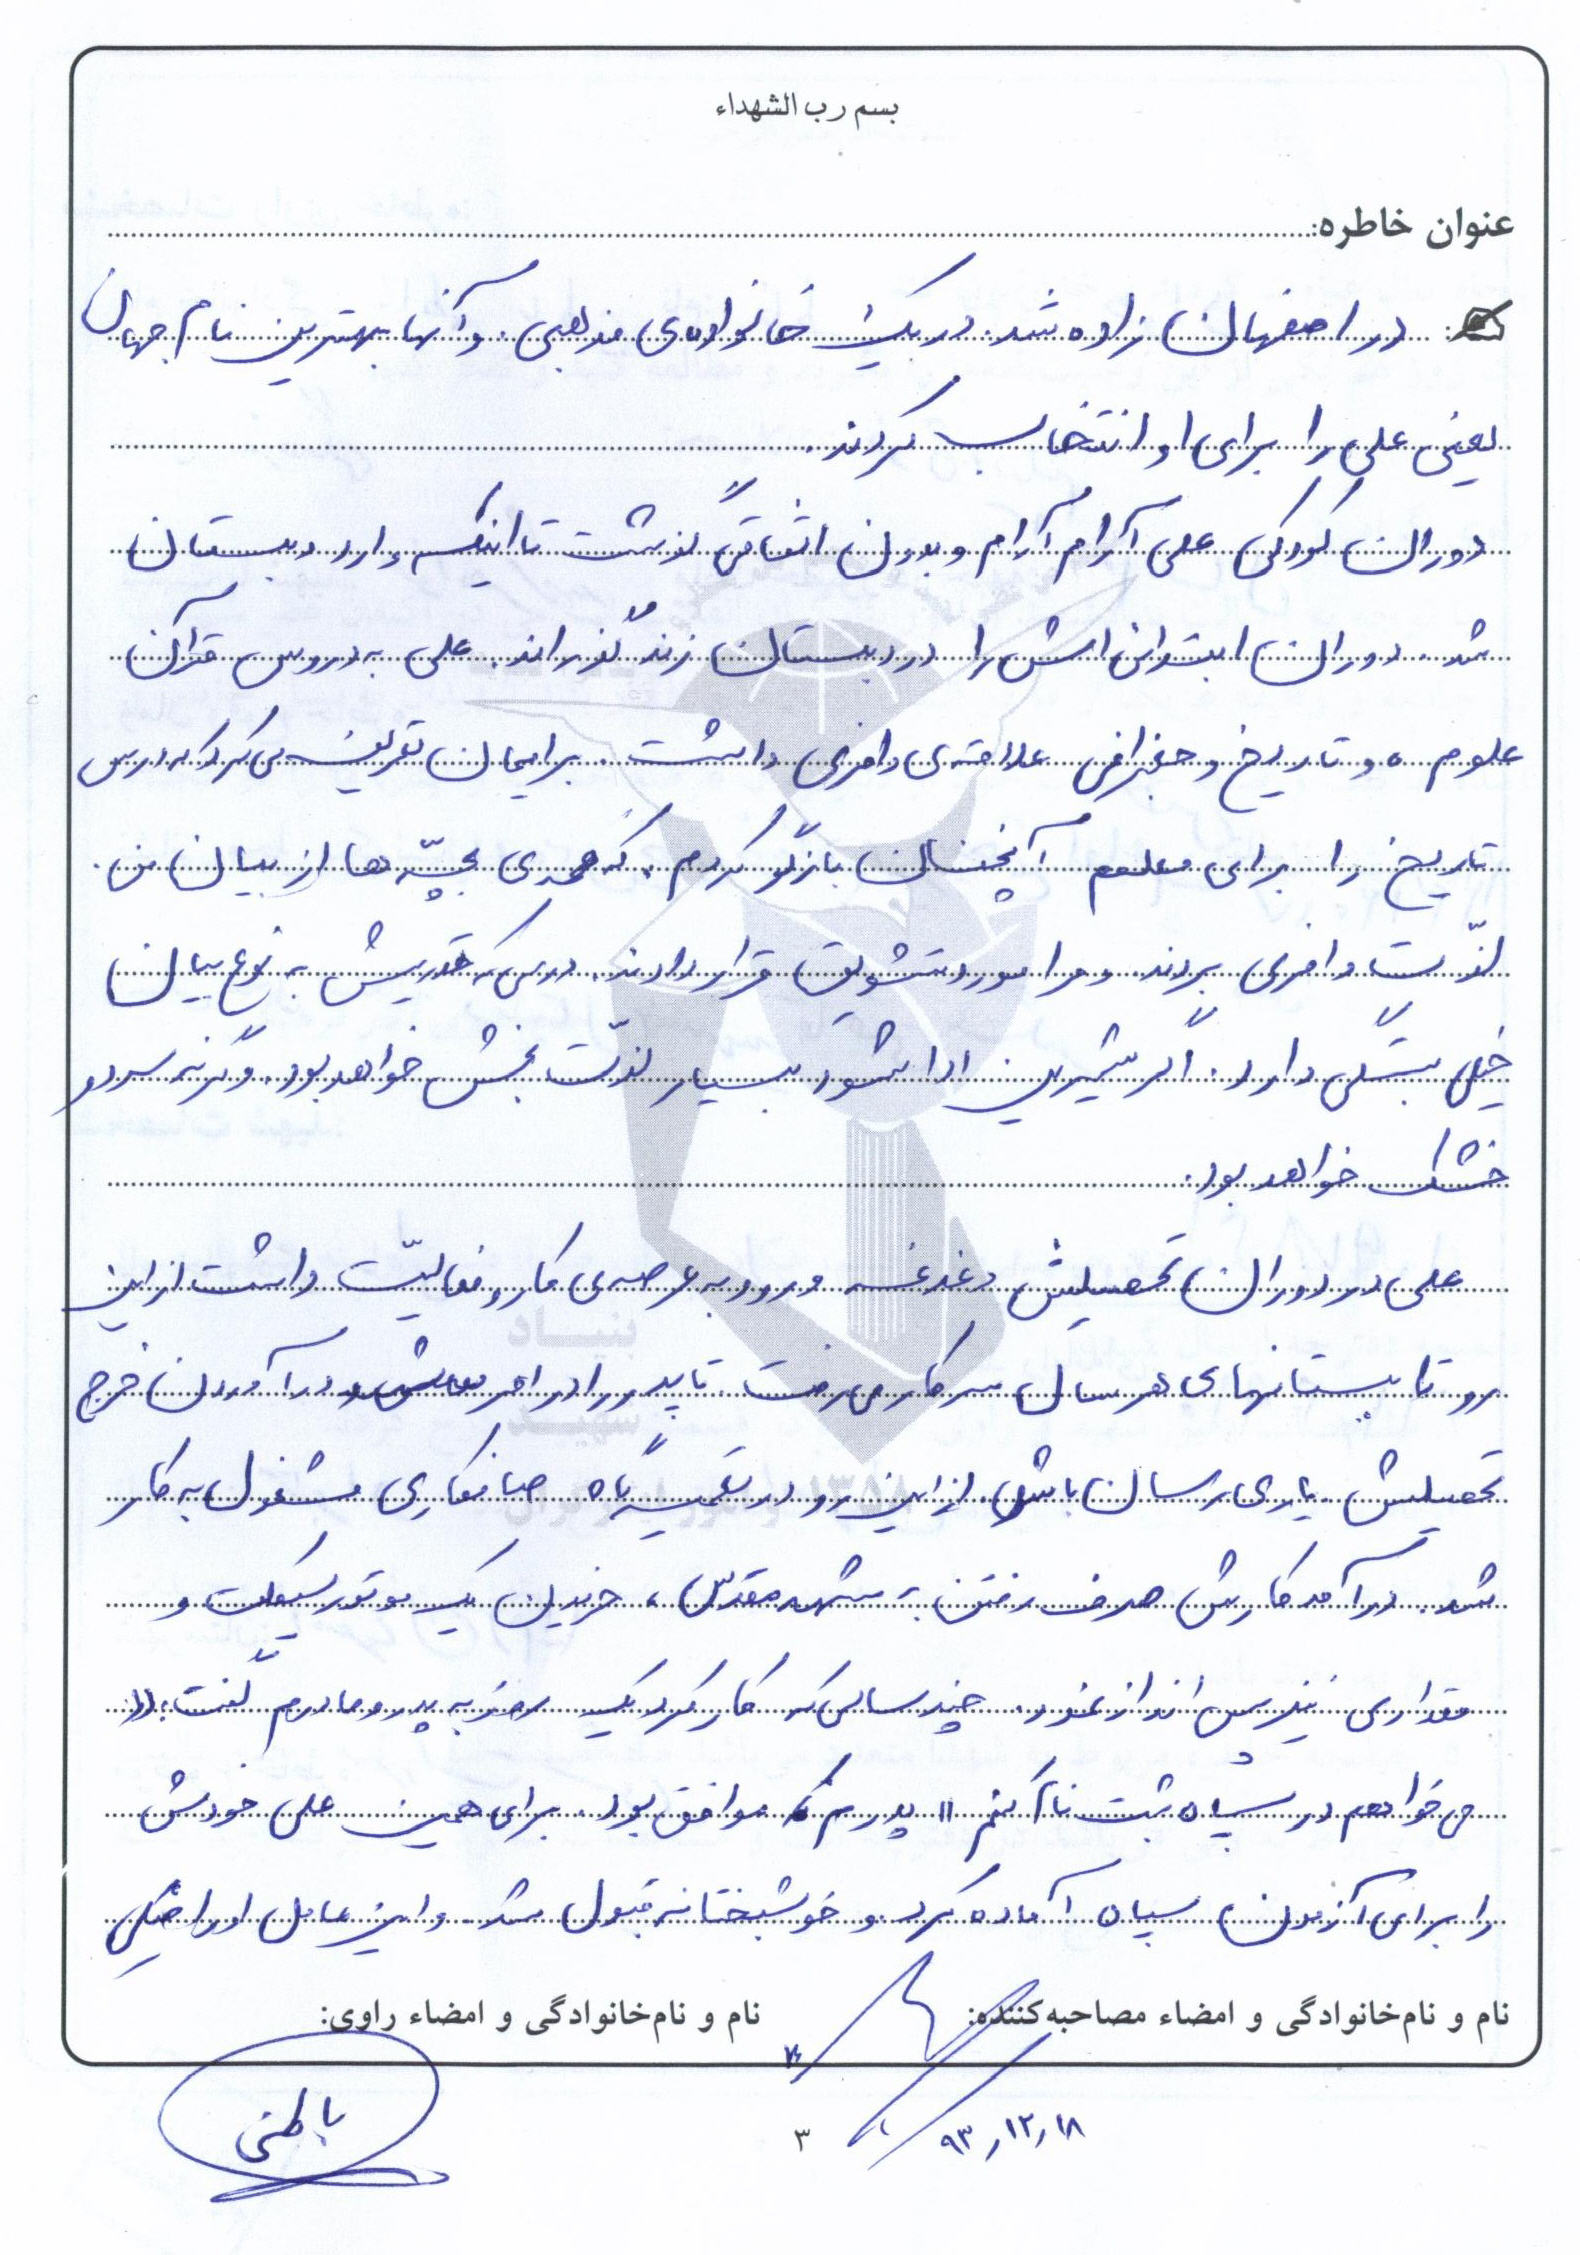 بسم رب الشهداء
عنوان خاطره:
در اصفهان زاده شد. در یک خانواده‌ی مذهبی. و آنها بهترین نام جهان
یعنی علی را برای او انتخاب کردند.
دوران کودکی علی آرام آرام و بدون اتفاقی گذشت تا اینکه وارد دبستان
شد. دوران ابتدائی اش را در دبستان زند گذراند. علی به دروس قرآن
علوم ه و تاریخ و جغرافی علاقه‌ی وافری داشت. برایمان تعریف می کرد که درس
تاریخ را برای معلمم آنچنان بازگو کردم، که همه‌ی بچّه ها از بیان من.
لذّت وافری بردند و مرا مورد تشویق قرار دادند. درسی که تدریسش به نوع بیان
خیلی بستگی دارد. اگر شیرین ادا شود بسیار لذّت بخش خواهد بود. وگرنه سرد و
خشک خواهد بود.
علی در دوران تحصیلش دغدغه ورود به عرصه‌ی کار و فعالیّت داشت از این
رو تابستانهای هر سال سر کار می رفت. تا پدر را در امر معاش و در آوردن خرج
تحصیلش یاری رسان باشد. از این رو در تعمیرگاه صافکاری مشغول به کار
شد. درآمد کارش صرف رفتن به مشهد مقدّس، خریدن یک موتورسیکلت و
مقداری نیز پس انداز نمود. چند سالی که کار کرد یک روز به پدر و مادرم گفت: ((
می خواهم در سپاه ثبت نام کنم )) پدرم که موافق بود. برای همین علی خودش
را برای آزمون سپاه آماده کرد و خوشبختانه قبول شد. و این عامل او را خیلی
نام و نام‌خانوادگی و امضاء مصاحبه‌کننده: نام و نام‌خانوادگی و امضاء راوی:
باطنی
۳
۹۳٫۱۲٫۱۸
بنیاد
شهید